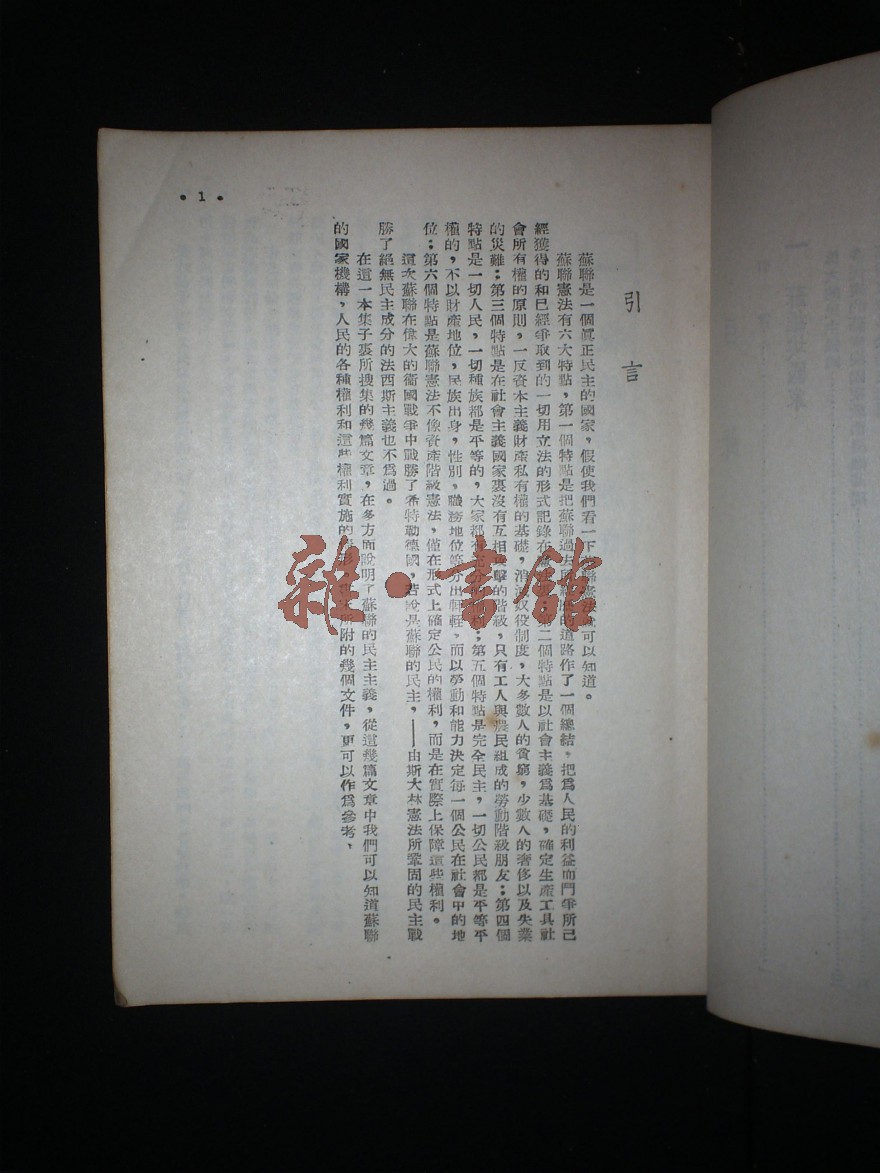 引言
蘇聯是一個眞正民主的國家，假使我們看一下蘇聯憲法就可以知道。
蘇聯憲法有六大特點，第一個特點是把蘇聯過去的道路作了一個總結，把爲人民的利益而鬥爭所已
經獲得的和已經爭取到的一切用立法的形式記錄在憲法第二個特點是以社會主義爲基礎，確定生產工具社
會所有權的原則，一反資本主義財產私有權的基礎，消奴役制度，大多數人的貧窮，少數人的奢侈以及失業
的災難；第三個特點是在社會主義國家裏沒有互相擊的階級，只有工人與農民組成的勞動階級朋友；第四個
特點是一切人民，一切種族都是平等的，大家都有充分的；第五個特點是完全民主，一切公民都是平等平
權的，不以財產地位，民族出身，性別，職務地位等分出軒輊，而以勞動和能力決定每一個公民在社會中的地
位；第六個特點是蘇聯憲法不像資產階級憲法，僅在形式上確定公民的權利，而是在實際上保障這些權利。
這次蘇聯在偉大的衞國戰爭中戰勝了希特勒德國，若說是蘇聯的民主，——由斯大林憲法所鞏固的民主戰
勝了絕無民主成分的法西斯主義也不爲過。
在這一本集子裏所搜集的幾篇文章，在多方面說明了蘇聯的民主主義，從這幾篇文章中我們可以知道蘇聯
的國家機構，人民的各種權利和這些權利實施的所附的幾個文件，更可以作爲參考，
• 1 •
雜·書館